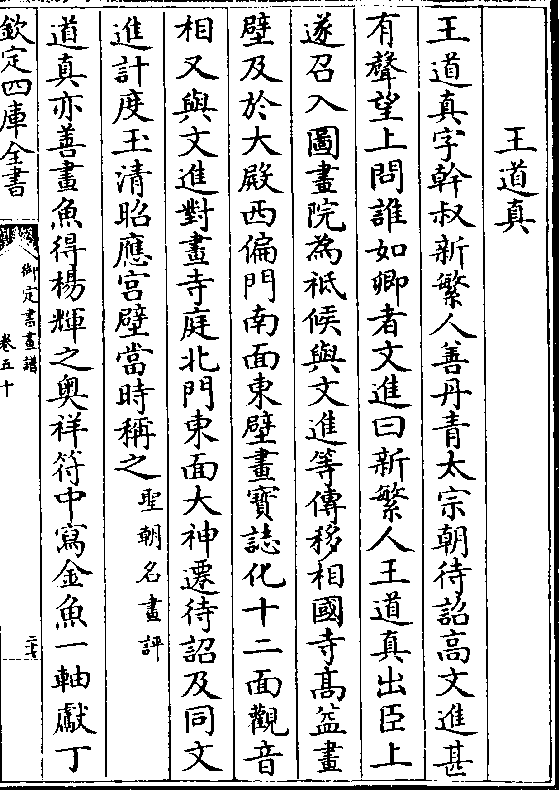 王道真
王道真字幹叔新繁人善丹青太宗朝待詔高文進甚
有聲望上問誰如卿者文進曰新繁人王道真出臣上
遂召入圖畫院為祗候與文進等傳移相國寺高益畫
壁及於大殿西偏門南面東壁畫寳誌化十二面觀音
相又與文進對畫寺庭北門東面大神遷待詔及同文
進計度玉清昭應宫壁當時稱之聖朝名畫評
道真亦善畫魚得楊輝之奥祥符中寫金魚一軸獻丁
欽定四庫全書
御定書畫譜
卷五十
二十六